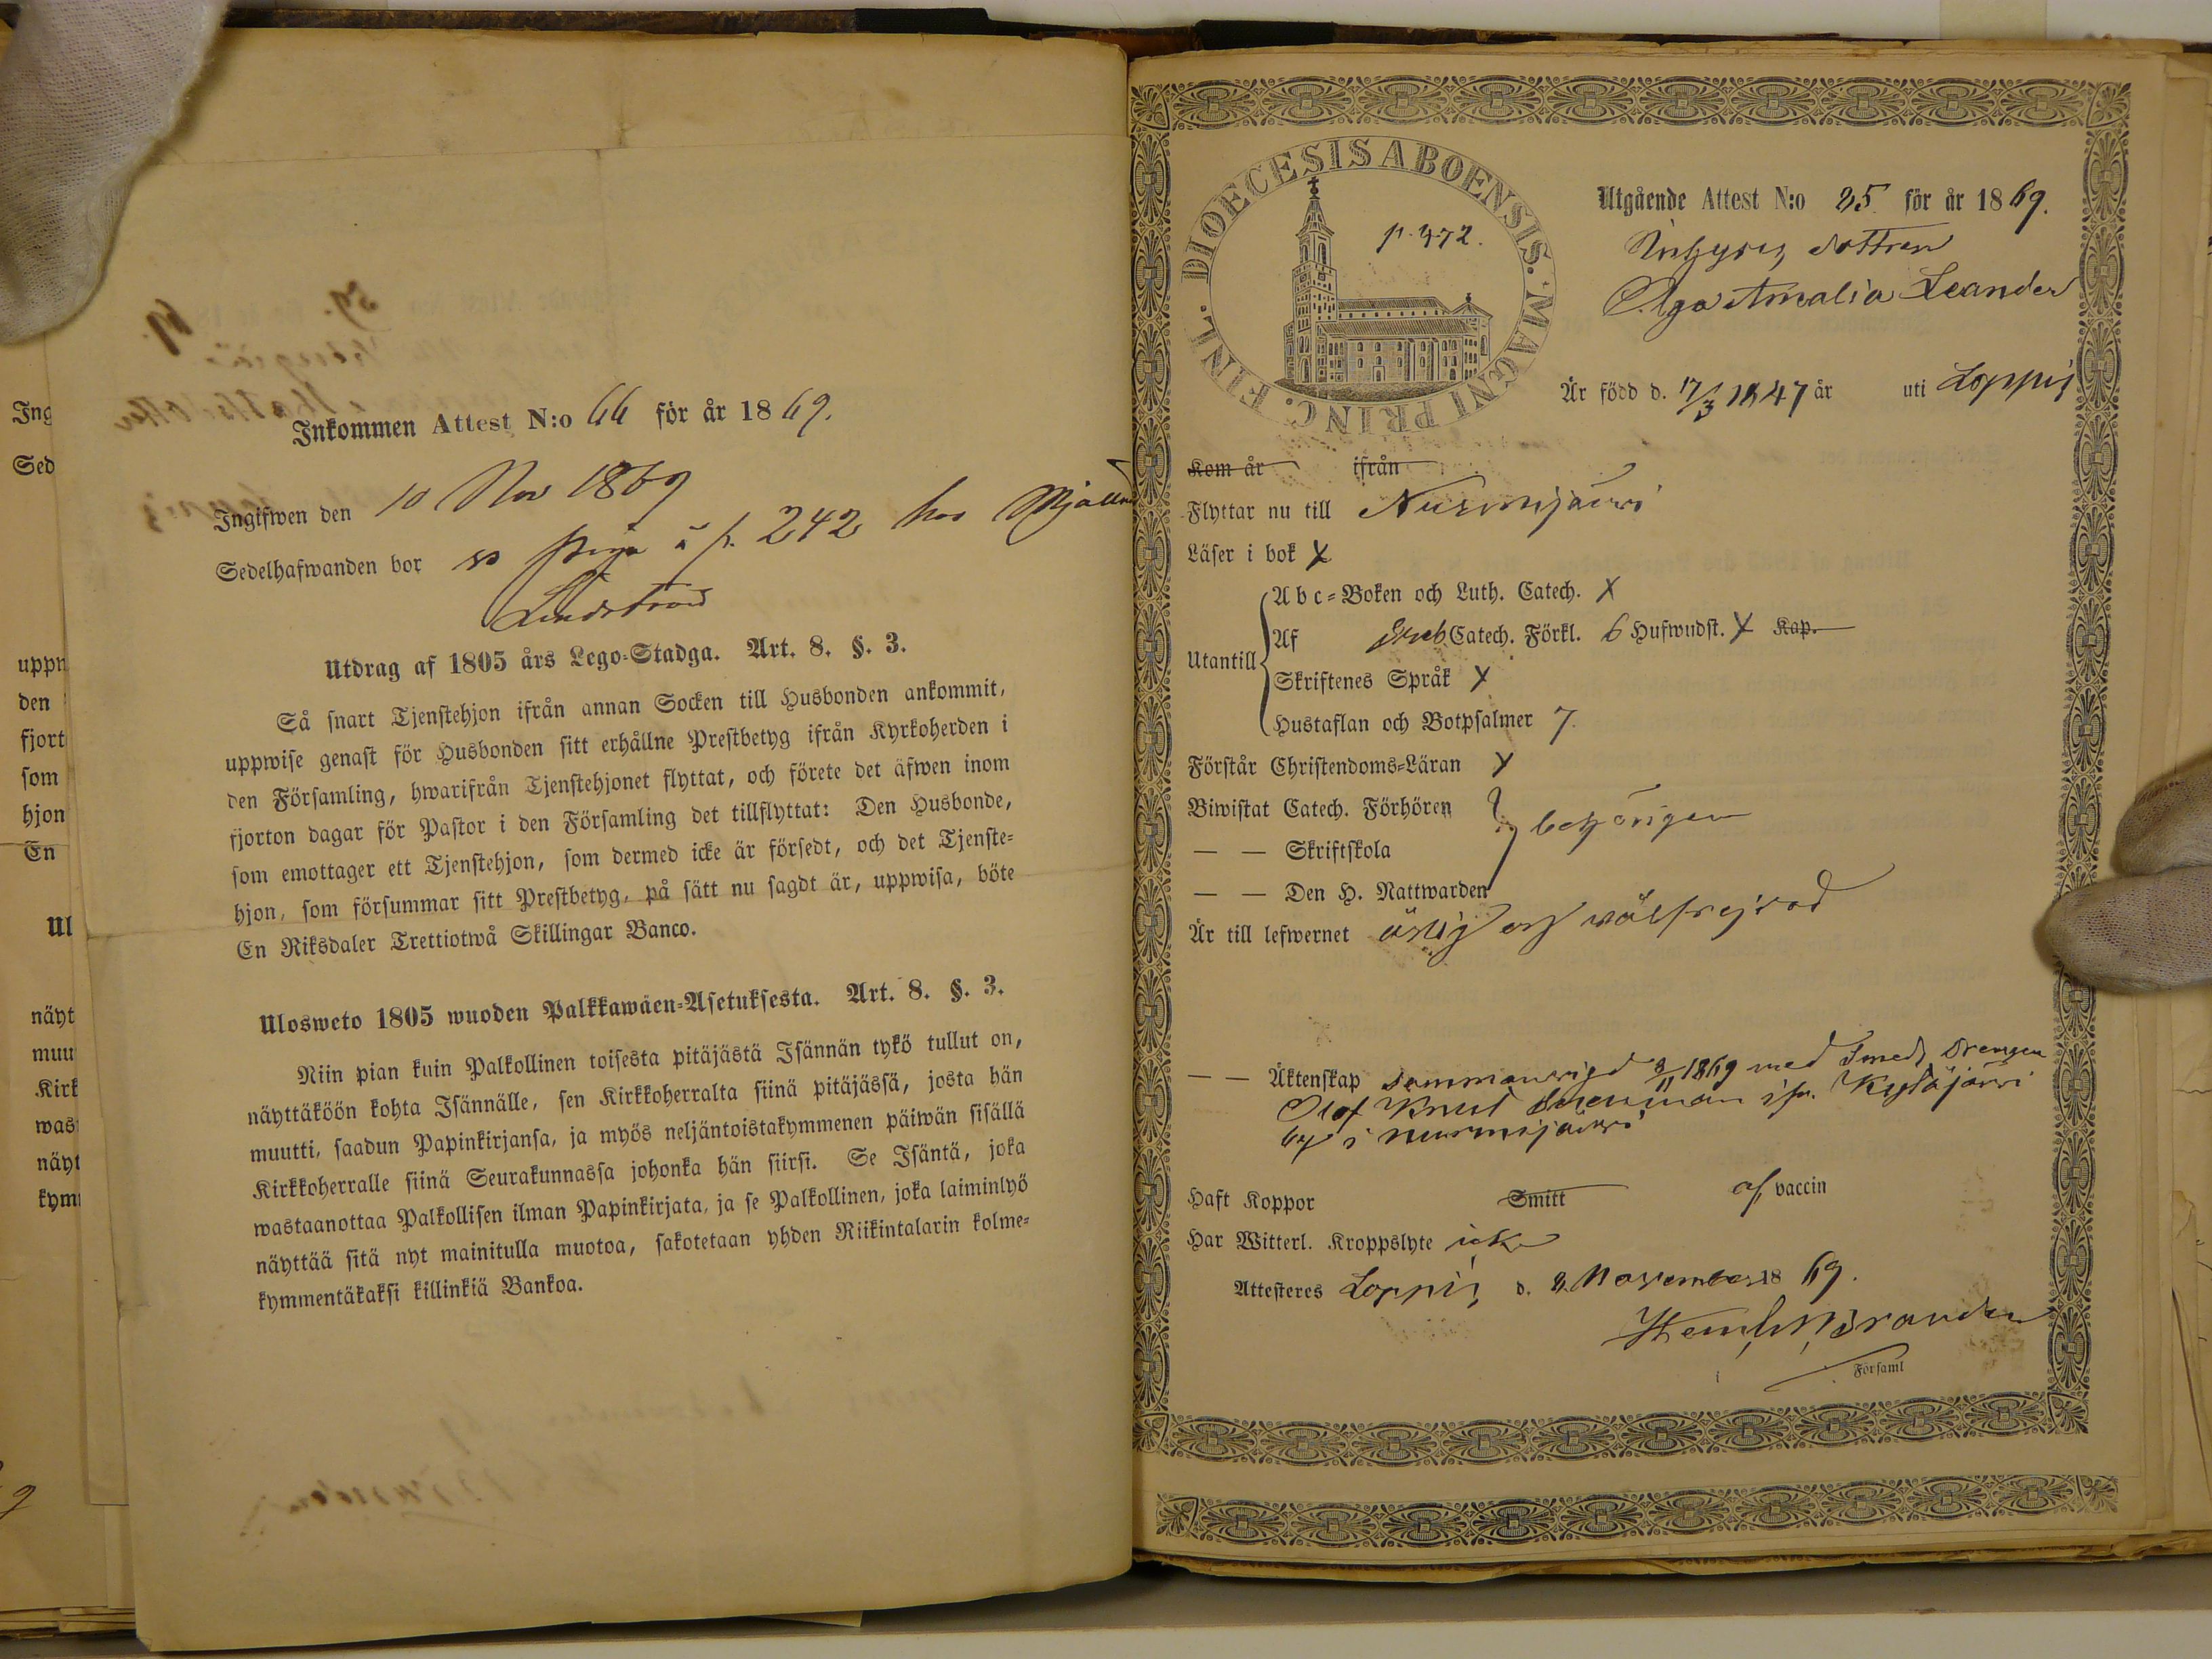 Inkommen Attest N:o 66 för år 1869.
Ingifwen den 10 Nov 1869
Sedelhafwanden bor ss piga å p. 242 hos Mjölln
Lindstråd
Utdrag af 1805 års Lego-Stadga. Art. 8. §. 3.
Så snart Tjenstehjon ifrån annan Socken till Husbonden ankommit,
uppwise genast för Husbonden sitt erhållne Prestbetyg ifrån Kyrkoherden i
den Församling, hwarifrån Tjenstehjonet flyttat, och förete det äfwen inom
fjorton dagar för Pastor i den Församling det tillflyttat: Den Husbonde,
som emottager ett Tjenstehjon, som dermed icke är försedt, och det Tjenste-
hjon, som försummar sitt Prestbetyg, på sätt nu sagdt är, uppwisa, böte
En Riksdaler Trettiotwå Skillingar Banco.
Ulosweto 1805 wuoden Palkkawäen-Asetuksesta. Art. 8. §. 3.
Niin pian kuin Palkollinen toisesta pitäjästä Isännän tykö tullut on,
näyttäköön kohta Isännälle, sen Kirkkoherralta siinä pitäjässä, josta hän
muutti, saadun Papinkirjansa, ja myös neljäntoistakymmenen päiwän sisällä
Kirkkoherralle siinä Seurakunnassa johonka hän siirsi. Se Isäntä, joka
wastaanottaa Palkollisen ilman Papinkirjata, ja se Palkollinen, joka laiminlyö
näyttää sitä nyt mainitulla muotoa, sakotetaan yhden Riikintalarin kolme-
kymmentäkaksi killinkiä Bankoa.
DIOECESIS ABOENSIS. MAGNI PRINC. FINL.
p. 472.
Utgående Attest N:o 25 för år 1869.
dottren
Olga Amalia Leander
Är född d. 17/3 1847 år uti Loppis
Kom år ifrån
Flyttar nu till Nurmijärvi
Läser i bok X
Utantill
Abc-Boken och Luth. Catech. X
Af Catech. Förkl. 6 Hufwudst. X Kap.
Skriftenes Språk X
Hustaflan och Botpsalmer 7.
Förstår Christendoms-Läran X
Biwistat Catech. Förhören
— — Skriftskola behörigen
— — Den H. Nattwarden
Är till lefwernet ärlig och välfrejdad
— — Äktenskap sammanvigd 3/11 1869 med Smedsdrengen
Olof Knut ifr. Kytäjärvi
by i Nurmijärvi
Haft Koppor Smitt af vaccin
Har Witterl. Kroppslyte icke
Attesteres Loppis d. 3 November 1869.
Branden
Församl